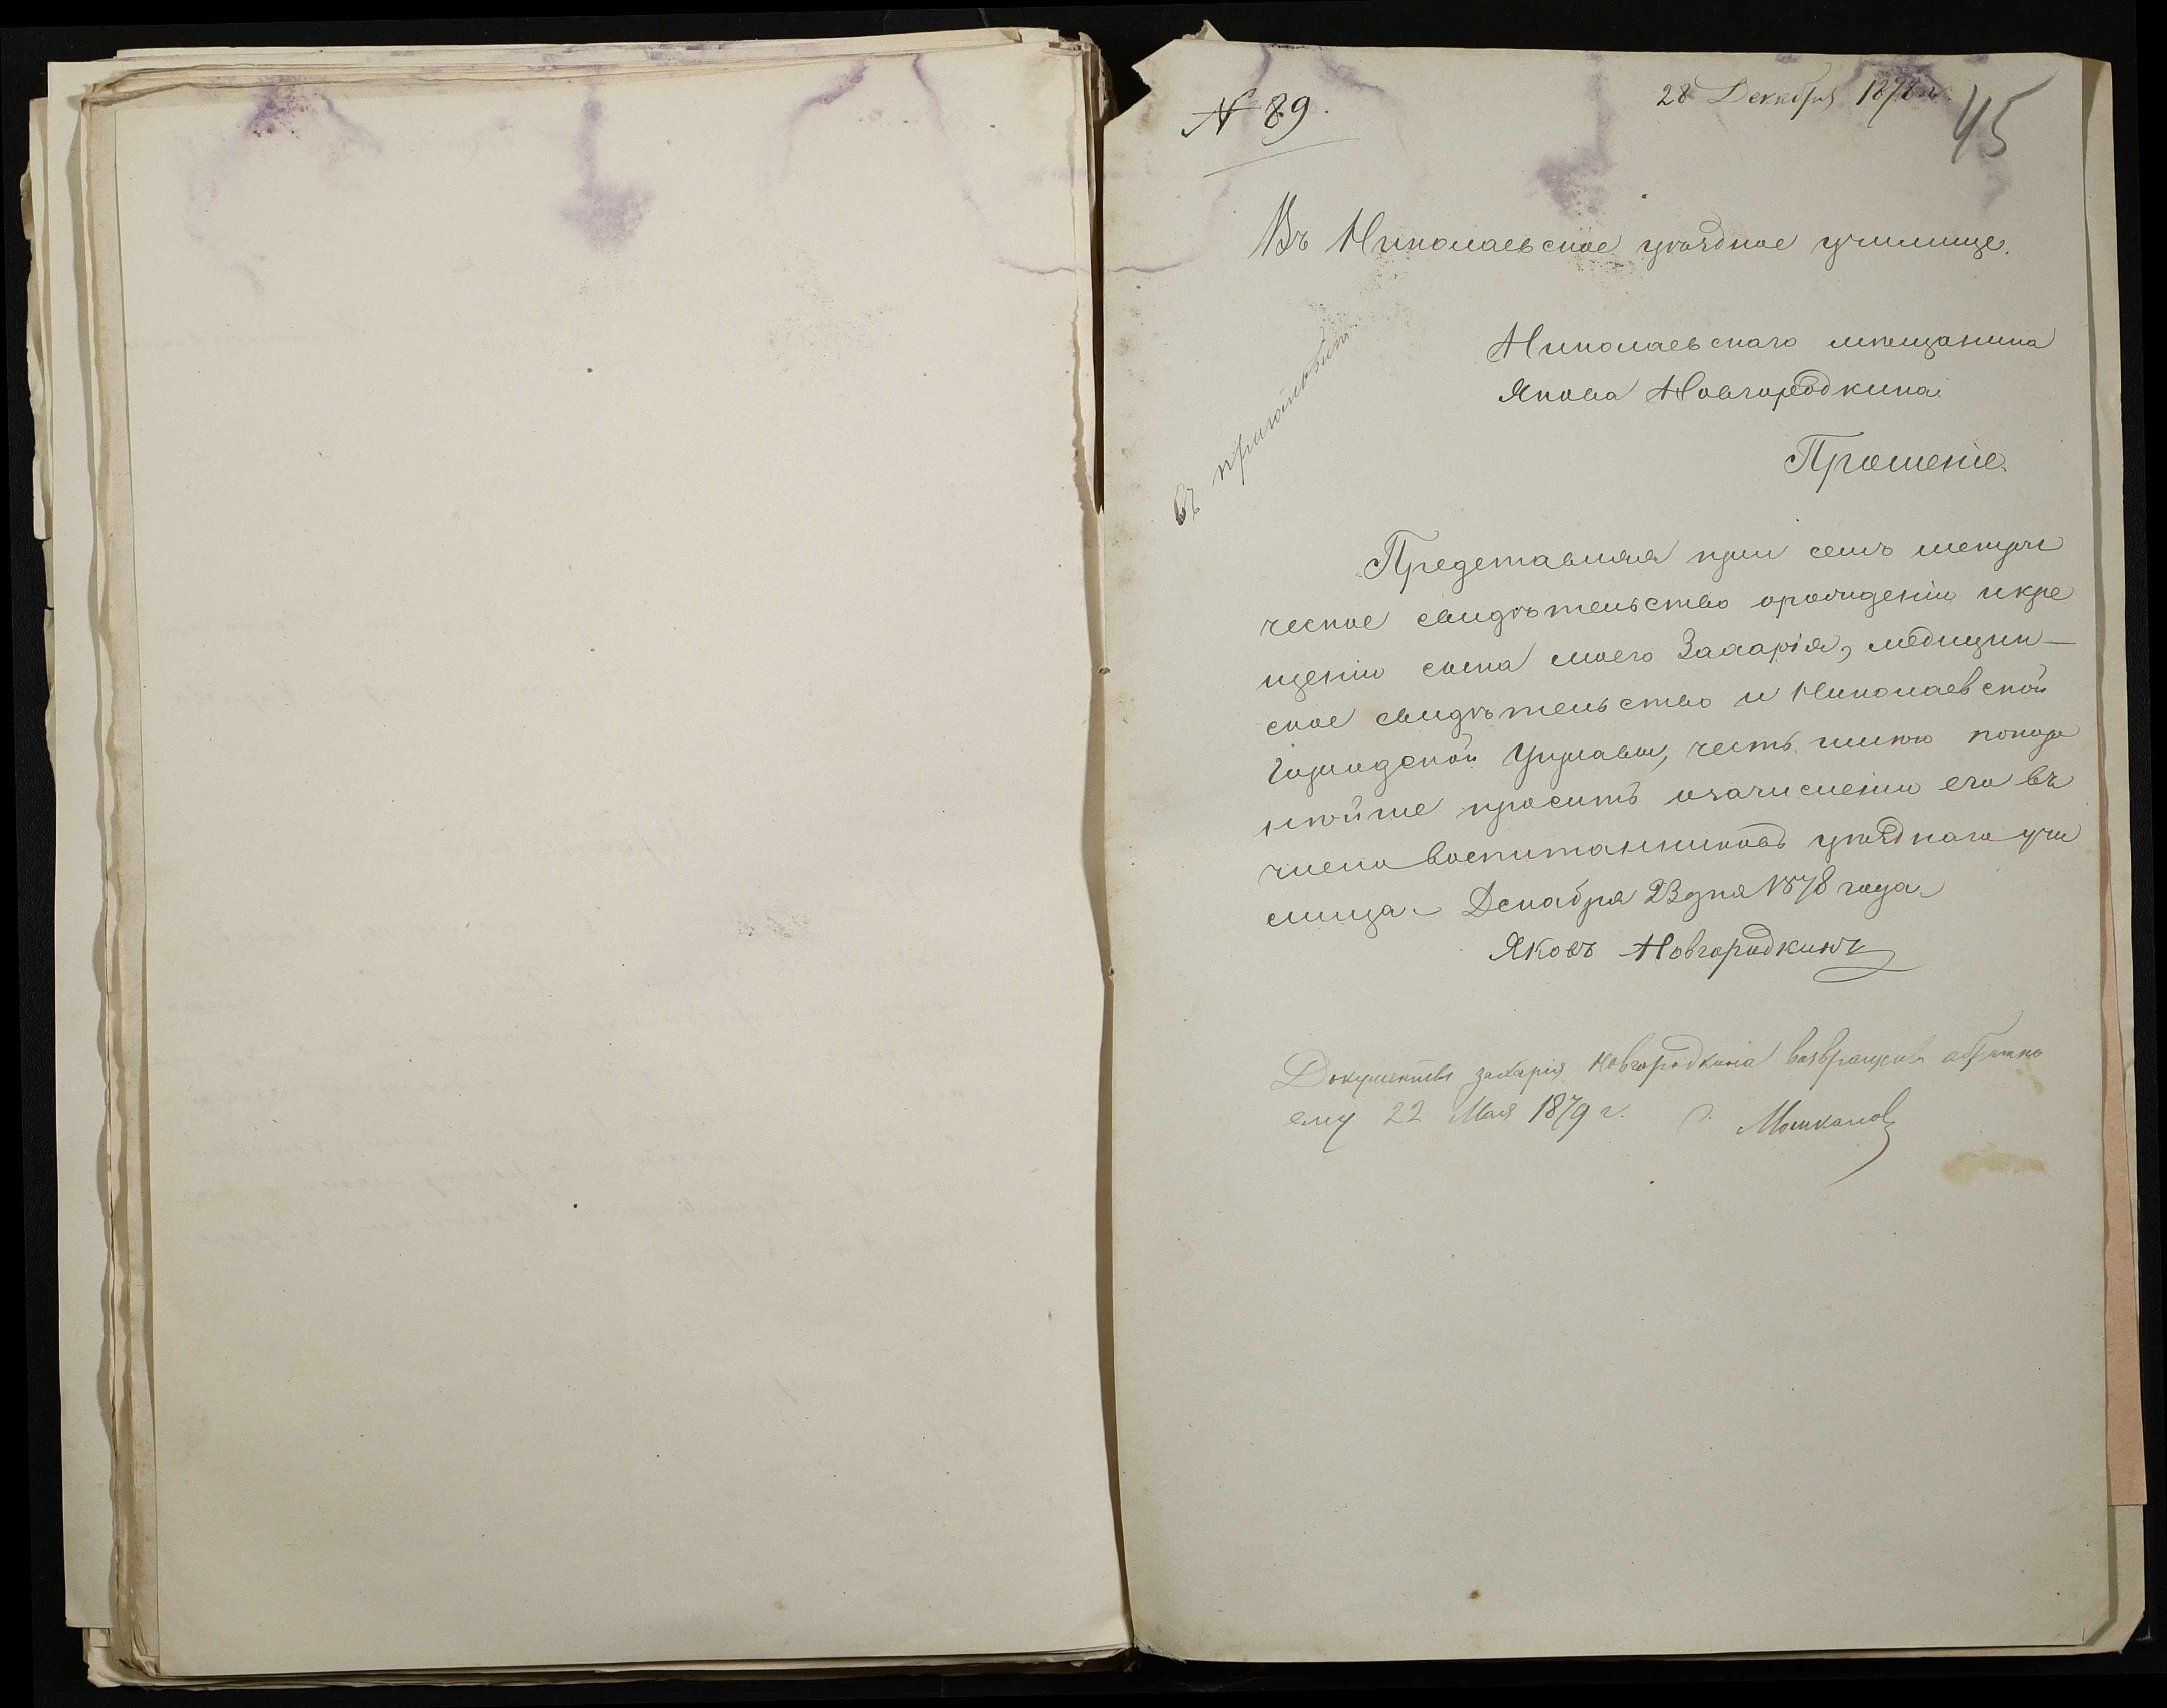 № 89.
28 Декабря 1878 г.
45
Въ Николаевское уѣздное училище.
въ приготовит.
Николаевскаго мѣщанина
Якова Новгородкина
Прошеніе
Представляя при семъ метри
ческое свидѣтельство орожденіи икре
щеніи сына моего Захарія, медицин-
ское свидѣтельство и Николаевской
Городской Управы, честь имѣю покор
нѣйше просить озачисленіи его въ
число воспитанниковъ уѣзднаго учи
лища. Декабря 23 дня 1878 года
Яковъ Новгородкинъ
Документы Захарія Новгородкина возвращены обратно
ему 22 Мая 1879 г.